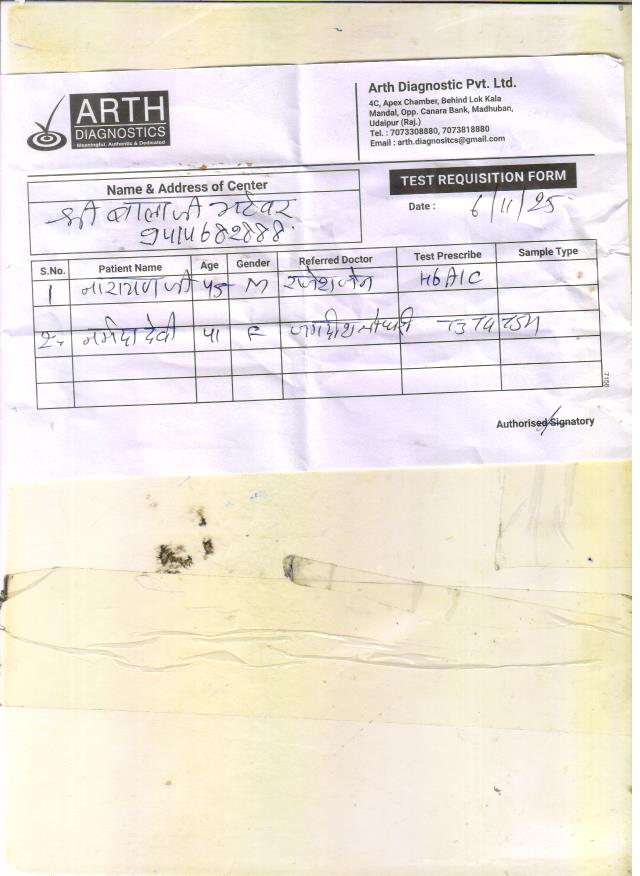 ARTH
DIAGNOSTICS
Meaningful. Authentic & Dedicated
Arth Diagnostic Pvt. Ltd.
4C, Apex Chamber, Behind Lok Kala
Mandal, Opp. Canara Bank, Madhuban,
Udaipur (Raj.)
Tel. : 7073308880, 7073818880
Email : arth.diagnositcs@gmail.com
TEST REQUISITION FORM
Date : 6/11/25
Name & Address of Center
श्री बालाजी भटेवर
9414682888.
S.No. Patient Name Age Gender Referred Doctor Test Prescribe Sample Type
1 नारायण जी 45 M राजेश जैन HbA1C
2. नर्मदा देवी 41 F जगदीश चौधरी T3 T4 TSH
7150
Authorised Signatory